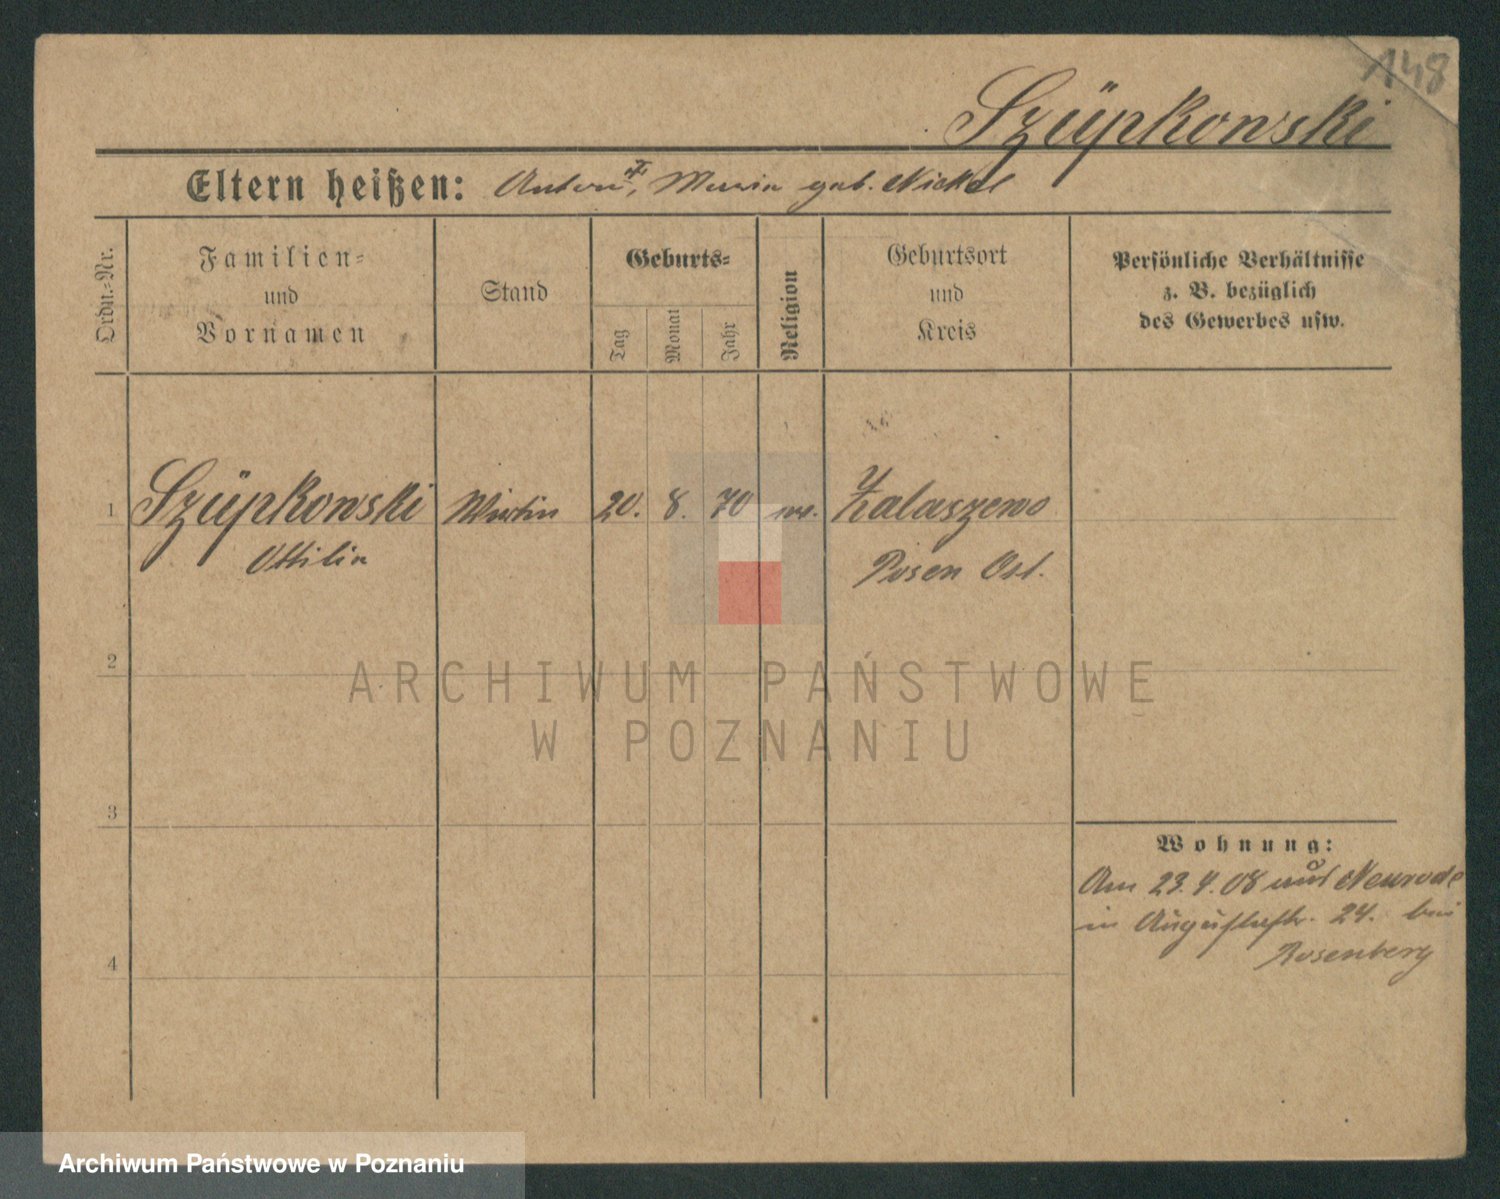 148
Szüpkowski
Eltern heißen: Anton †, Maria geb. Nickel
Ordn.-Nr.
Familien-
und
Vornamen
Stand
Geburts-
Tag
Monat
Jahr
Religion
Geburtsort
und
Kreis
Persönliche Verhältnisse
z. B. bezüglich
des Gewerbes usw.
1 Szüpkowski Wirtin 20. 8. 70 Zalaszewo
Ottilia Posen Ost.
2
ARCHIWUM PAŃSTWOWE
W POZNANIU
3
Wohnung:
Am 23.4.08 aus Neurode
in Augustastr. 24. bei
Rosenberg
4
Archiwum Państwowe w Poznaniu